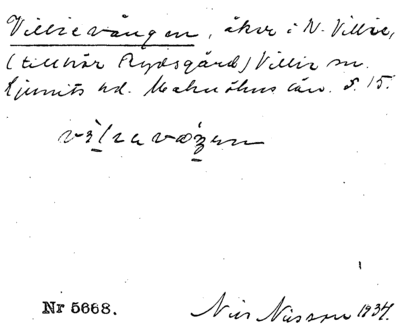 Villievången, åker i N. Villie,
(tillhör Rydsgård) Villie sn.
Ljunits hd. Malmöhus län. S. 15.
Nr 5668.
Nils Nilsson 1934.